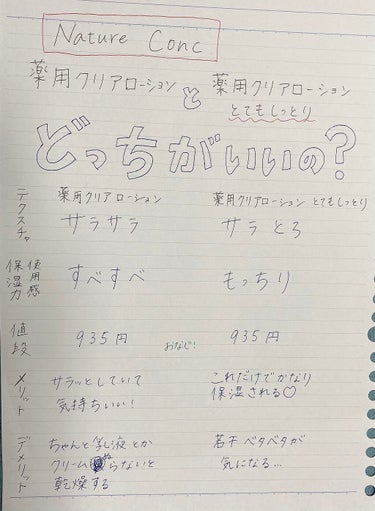 Nature Conc
薬用クリアローション と 薬用クリアローション
とてもしっとり
どっちがいいの?
薬用クリアローション 薬用クリアローション とてもしっとり
テクスチャ サラサラ サラとろ
使用感 保湿力 すべすべ もっちり
値段 935円 おなじ! 935円
メリット サラッとしていて これだけでかなり
気持ちいい! 保湿される♡
デメリット ちゃんと乳液とか 若干ベタベタが
クリームやらないと 気になる…
乾燥する